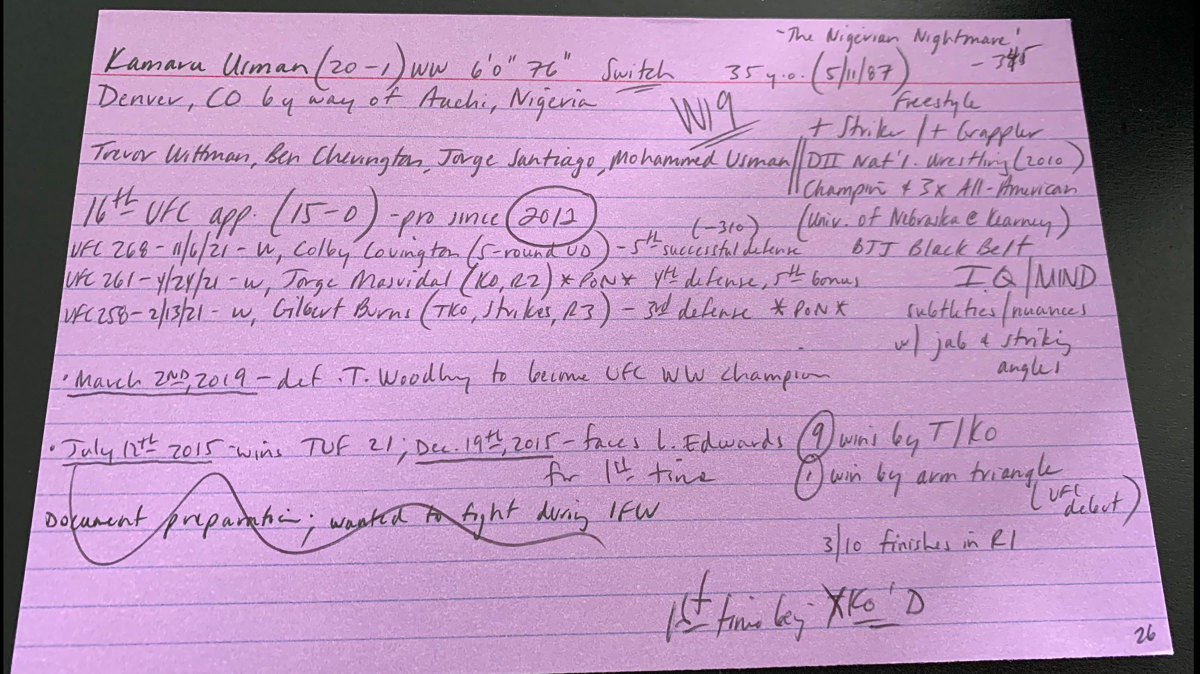 "The Nigerian Nightmare"
Kamaru Usman (20-1) WW 6'0" 76" Switch 35 y.o. (5/11/87) -345
Denver, CO by way of Auchi, Nigeria
W19
Freestyle
+ Striker / + Grappler
Trevor Wittman, Ben Cherington, Jorge Santiago, Mohammed Usman
DII Nat'l. Wrestling (2010)
Champion + 3x All-American
(Univ. of Nebraska @ Kearney)
BJJ Black Belt
16th UFC app. (15-0) - pro since 2012
(-310)
UFC 268 - 11/6/21 - W, Colby Covington (5-round UD) - 5th successful defense
UFC 261 - 4/24/21 - W, Jorge Masvidal (KO, R2) *PoN* 4th defense, 5th bonus
UFC 258 - 2/13/21 - W, Gilbert Burns (TKO, Strikes, R3) - 3rd defense *PoN*
IQ/MIND
subtleties/nuances
w/ jab + striking
angles
• March 2ND, 2019 - def. T. Woodley to become UFC WW champion
• July 12th 2015 - wins TUF 21; Dec. 19th, 2015 - faces L. Edwards
for 1st time
9 wins by T/KO
1 win by arm triangle
(UFC debut)
Document preparation; wanted to fight during IFW
3/10 finishes in R1
1st time being KO'D
26